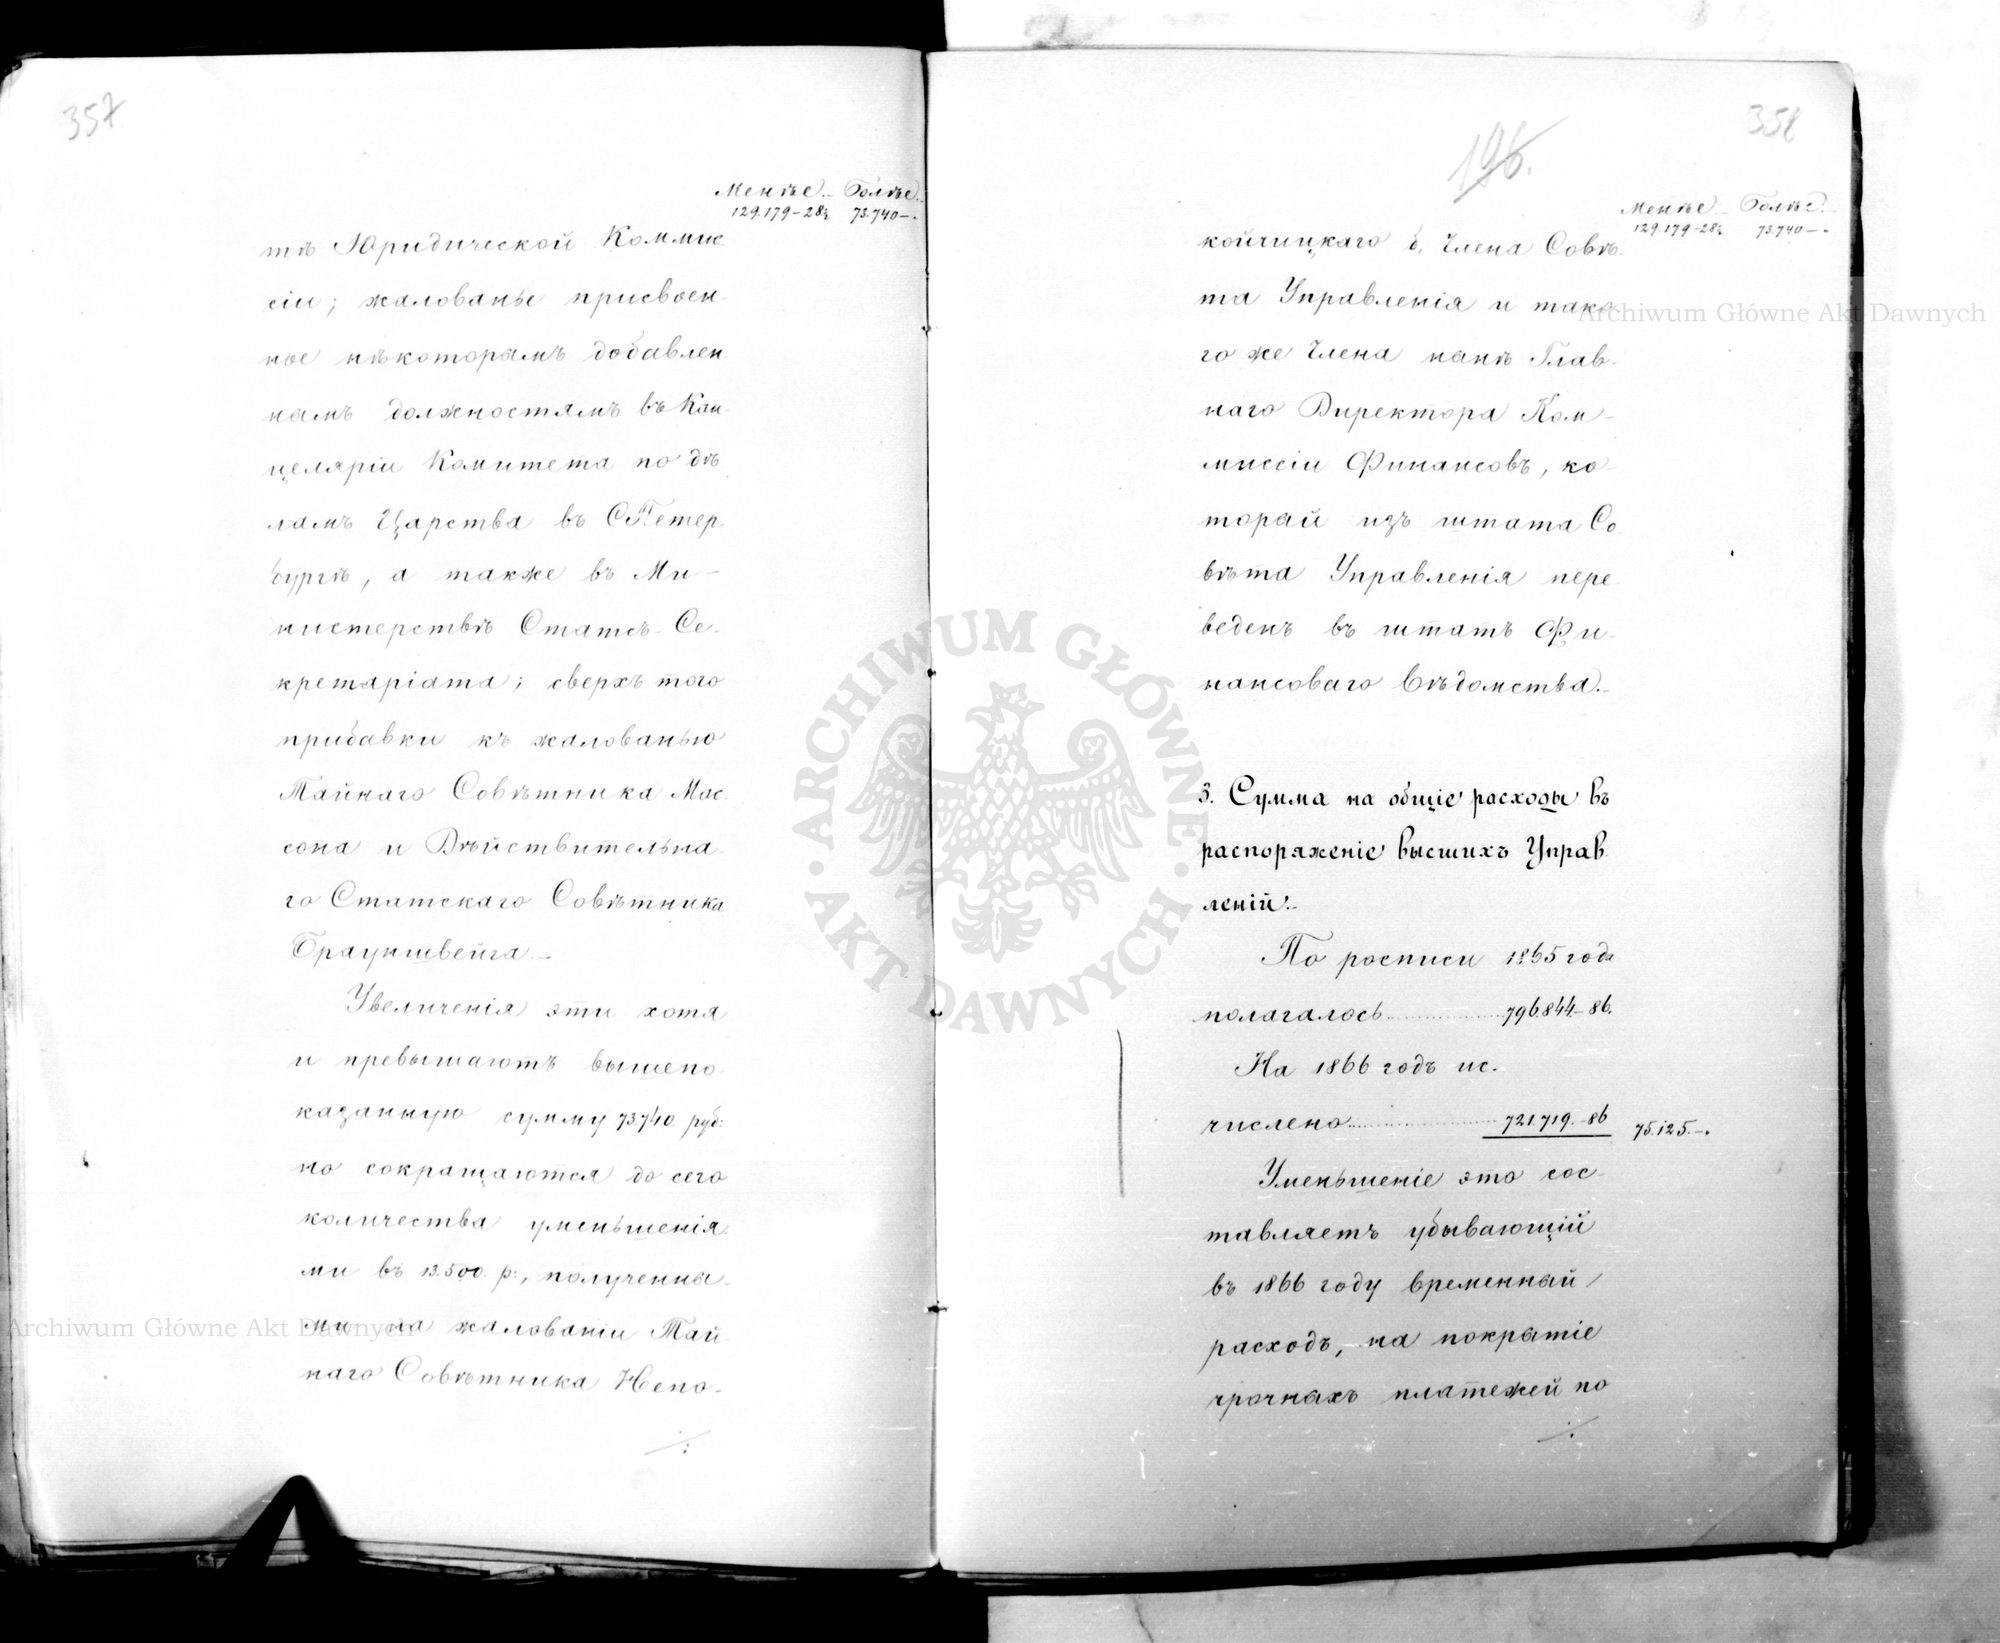 357
Менѣе. Болѣе.
129.179-28½ 73.740-.
тѣ Юридической Коммис
сіи; жалованье присвоен-
ное нѣкоторымъ добавлен
нымъ должностямъ въ Кан-
целяріи Комитета по дѣ
ламъ Царства въ СПетер-
бургѣ, а также въ Ми-
нистерствѣ Статсъ-Се-
кретаріата; сверхъ того
прибавки къ жалованью
Тайнаго Совѣтника Мас-
сона и Дѣйствительна-
го Статскаго Совѣтника
Брауншвейга.
Увеличенія эти хотя
и превышаютъ вышепо-
казанную сумму 73.740. руб:
но сокращаются до сего
количества уменьшенія
ми въ 13.500. р:, полученны-
ми на жалованіи Тай
наго Совѣтника Непо-
./.
358
196.
Менѣе Болѣе.
129.179-28½ 73.740-.
койчицкаго б. Члена Совѣ-
та Управленія и тако-
го же Члена нынѣ Глав-
наго Директора Ком-
миссіи Финансовъ, ко-
торый изъ штата Со
вѣта Управленія пере-
веденъ въ штатъ Фи-
нансоваго Вѣдомства.
3. Сумма на общіе расходы въ
распоряженіе высшихъ Управ
леній.
По росписи 1865 года
полагалось 796.844.-86.
На 1866 годъ ис-
числено 721.719.-86 75.125.-.
Уменьшеніе это сос-
тавляетъ убывающій
въ 1866 году временный
расходъ, на покрытіе
срочныхъ платежей по
./.
Archiwum Główne Akt Dawnych
Archiwum Główne Akt Dawnych
ARCHIWUM GŁÓWNE · AKT DAWNYCH ·